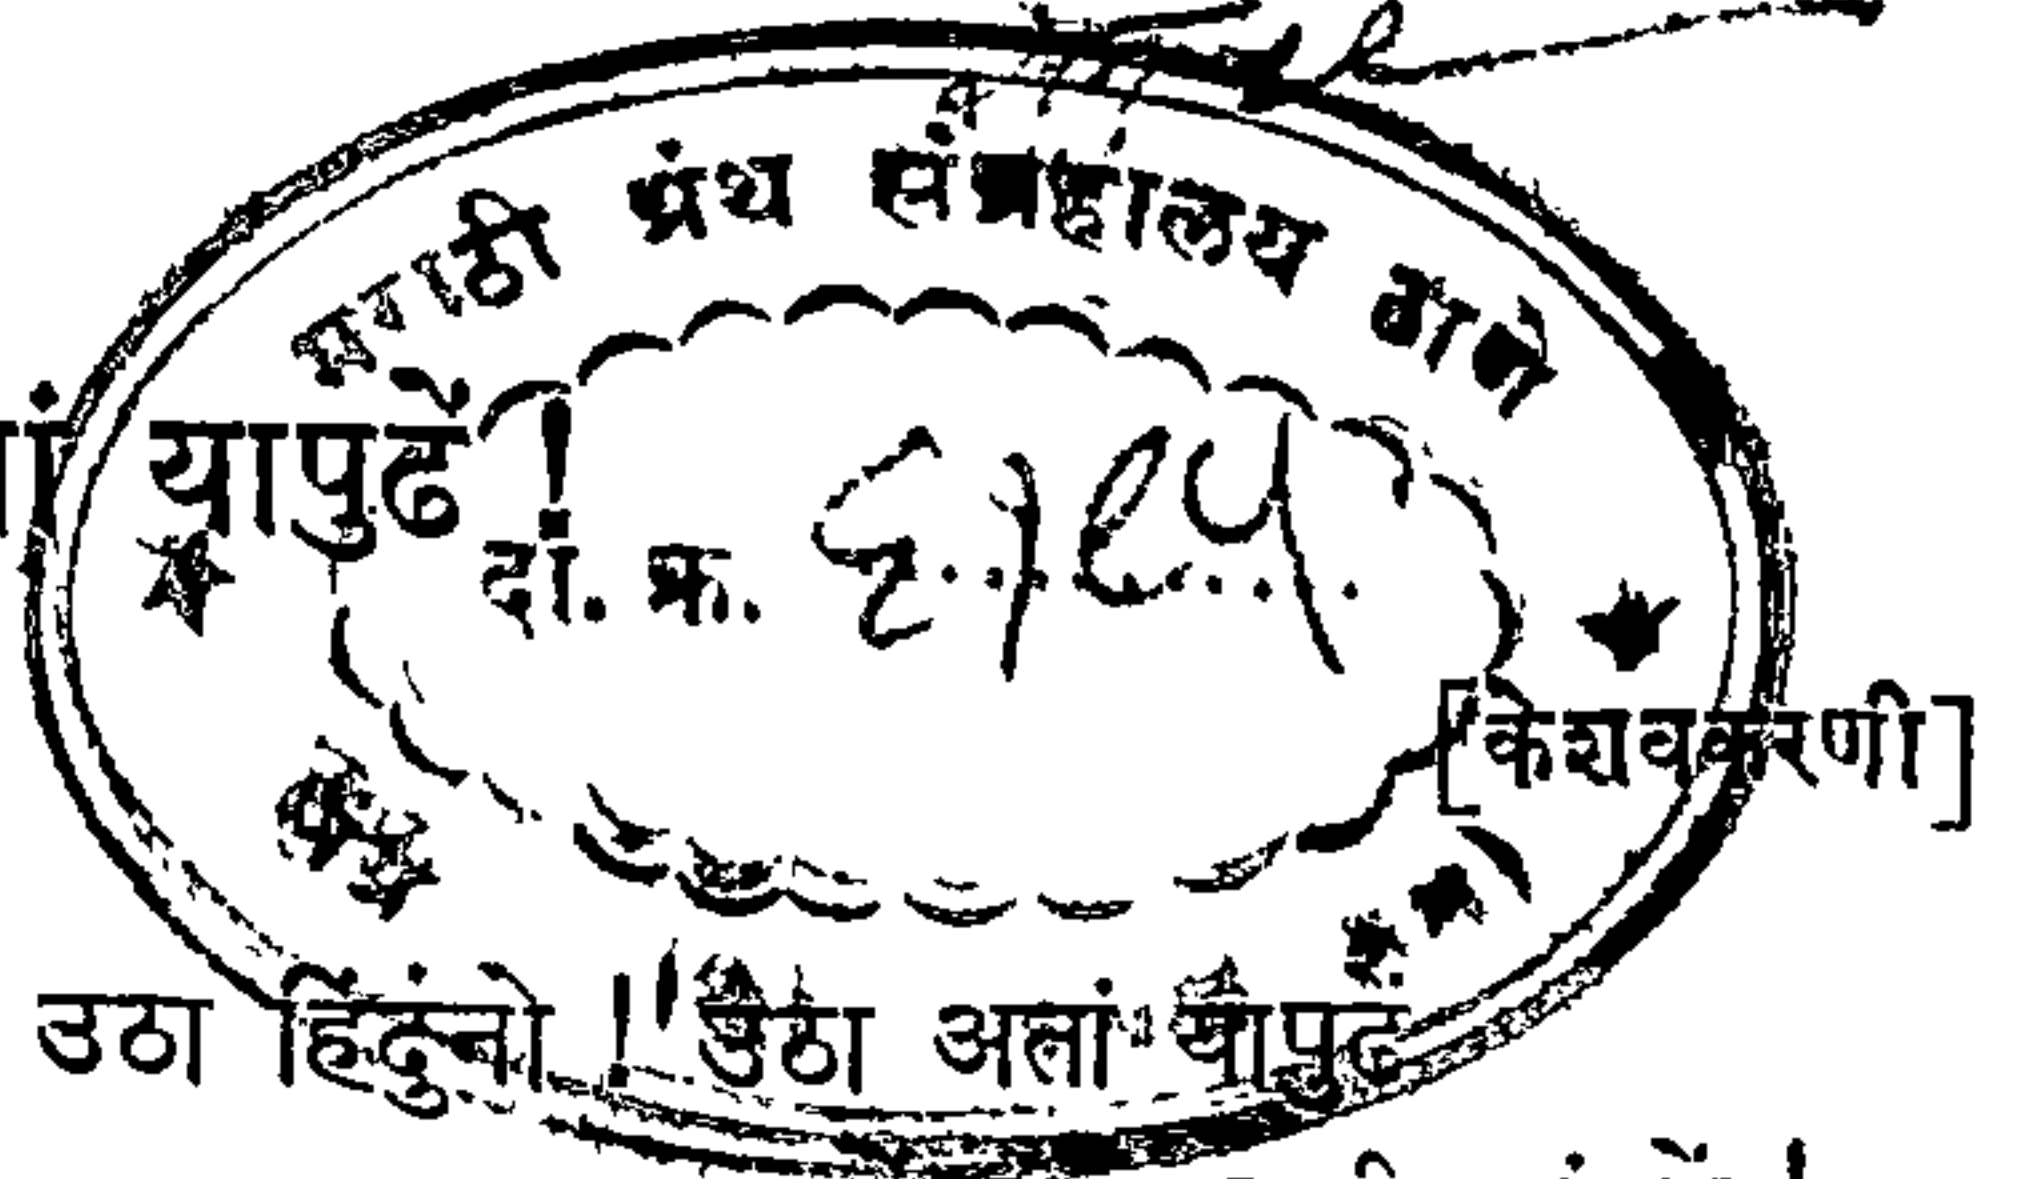 मराठी ग्रंथ संग्रहालय ठाणे
यापुढें !
दा. क्र. ६१९५
[केशवकरणी]
उठा हिंदुंनो ! उठा अतां यापुढें